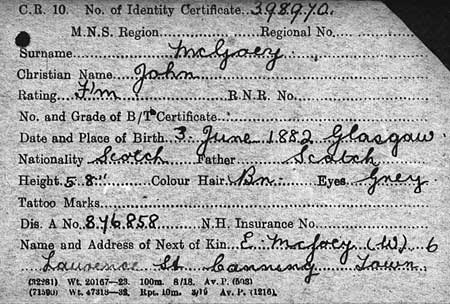 C.R. 10. No. of Identity Certificate 398970.
M.N.S. Region Regional No.
Surname McGoey
Christian Name John
Rating F'm R.N.R. No.
No. and Grade of B/T Certificate
Date and Place of Birth 3. June 1882 Glasgow
Nationality Scotch Father Scotch
Height 5.8" Colour Hair Bn Eyes Grey
Tattoo Marks
Dis. A No. 876858 N.H. Insurance No.
Name and Address of Next of Kin E. McGoey (W) 6
Lawrence St Canning Town
(32281) Wt. 20167—23. 100m. 8/18. Av. P. (503)
Wt. 47318—32. Rpt. 10m. 3/19 Av. P. (1216).